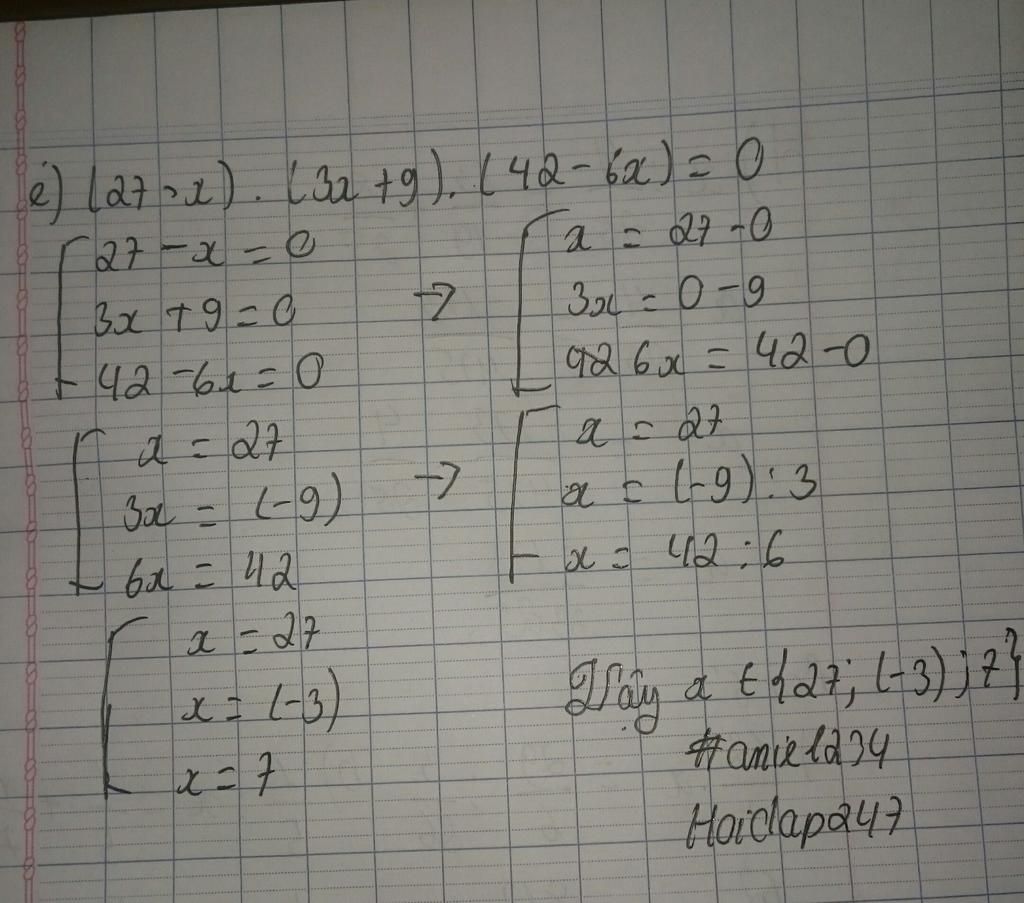 e) (27 - x) . (3x + 9) . (42 - 6x) = 0
27 - x = 0
3x + 9 = 0
42 - 6x = 0
→
x = 27 - 0
3x = 0 - 9
6x = 42 - 0
x = 27
3x = (-9)
6x = 42
→
x = 27
x = (-9) : 3
x = 42 : 6
x = 27
x = (-3)
x = 7
Vậy x ∈ {27; (-3); 7}
Hoidap247